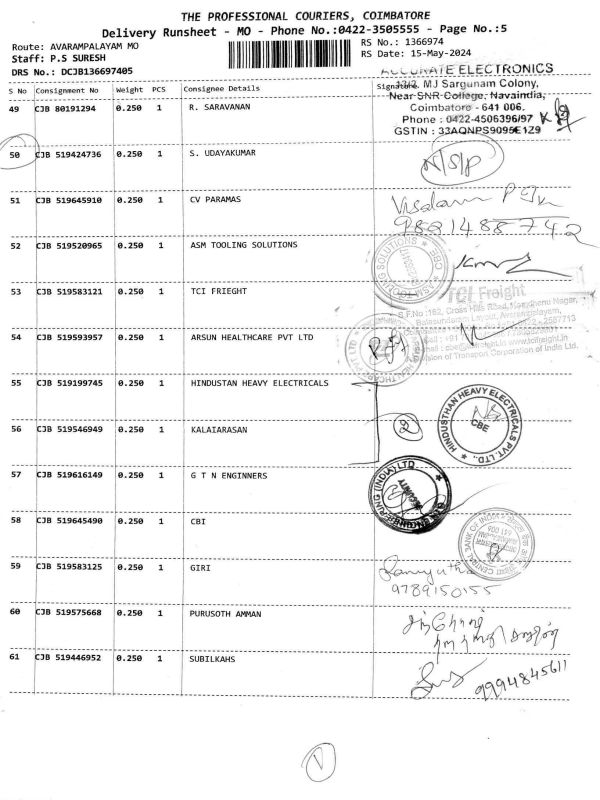 THE PROFESSIONAL COURIERS, COIMBATORE
Delivery Runsheet - MO - Phone No.:0422-3505555 - Page No.:5
Route: AVARAMPALAYAM MO
RS No.: 1366974
Staff: P.S SURESH
RS Date: 15-May-2024
DRS No.: DCJB136697405
ACCURATE ELECTRONICS
S No Consignment No Weight PCS Consignee Details Signature
MJ Sargunam Colony,
Near SNR College, Navaindia,
Coimbatore - 641 006.
Phone : 0422-4506396/97
GSTIN : 33AQNPS9095E1Z9
49 CJB 80191294 0.250 1 R. SARAVANAN
50 CJB 519424736 0.250 1 S. UDAYAKUMAR
N/S/P
51 CJB 519645910 0.250 1 CV PARAMAS
52 CJB 519520965 0.250 1 ASM TOOLING SOLUTIONS
53 CJB 519583121 0.250 1 TCI FRIEGHT
TCI Freight
54 CJB 519593957 0.250 1 ARSUN HEALTHCARE PVT LTD
Division of Transport Corporation of India Ltd.
55 CJB 519199745 0.250 1 HINDUSTAN HEAVY ELECTRICALS
HINDUSTHAN HEAVY ELECTRICALS PVT. LTD.
CBE
56 CJB 519546949 0.250 1 KALAIARASAN
57 CJB 519616149 0.250 1 G T N ENGINNERS
SECURITY
58 CJB 519645490 0.250 1 CBI
CENTRAL BANK OF INDIA
59 CJB 519583125 0.250 1 GIRI
9789150155
60 CJB 519575668 0.250 1 PURUSOTH AMMAN
61 CJB 519446952 0.250 1 SUBILKAHS
9994845611